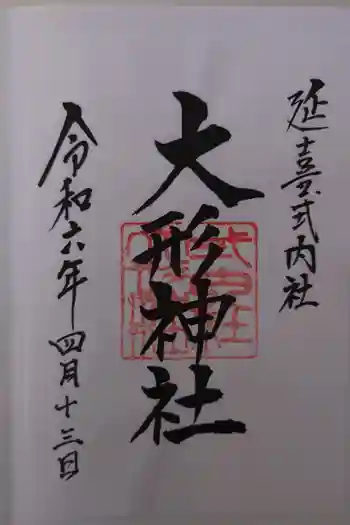 延喜式内社
大形神社
令和六年四月十三日